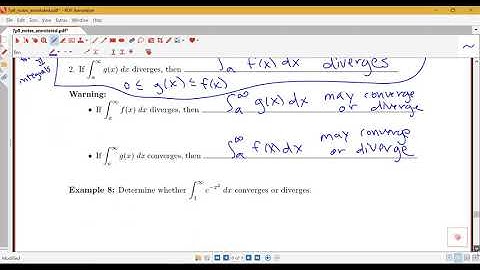 7p8_notes_annotated.pdf* - PDF Annotator
7p8_notes_annotated.pdf*
integrals
2. If ∫_a^∞ g(x) dx diverges, then ∫_a^∞ f(x) dx diverges
0 ≤ g(x) ≤ f(x)
Warning:
• If ∫_a^∞ f(x) dx diverges, then ∫_a^∞ g(x) dx may converge or diverge
• If ∫_a^∞ g(x) dx converges, then ∫_a^∞ f(x) dx may converge or diverge
Example 8: Determine whether ∫_1^∞ e^{-x^2} dx converges or diverges.
Modified